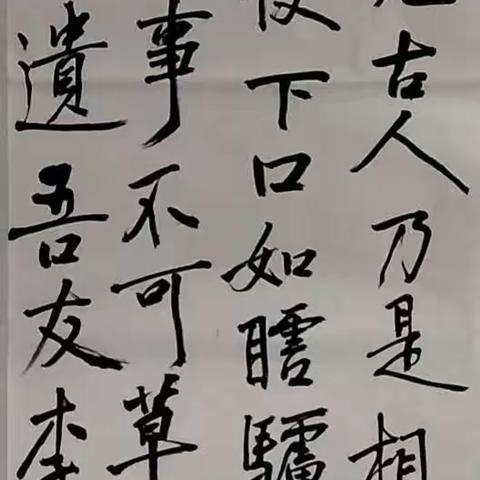 古人乃是相
下口如瞎驢
事不可草
遺吾友李